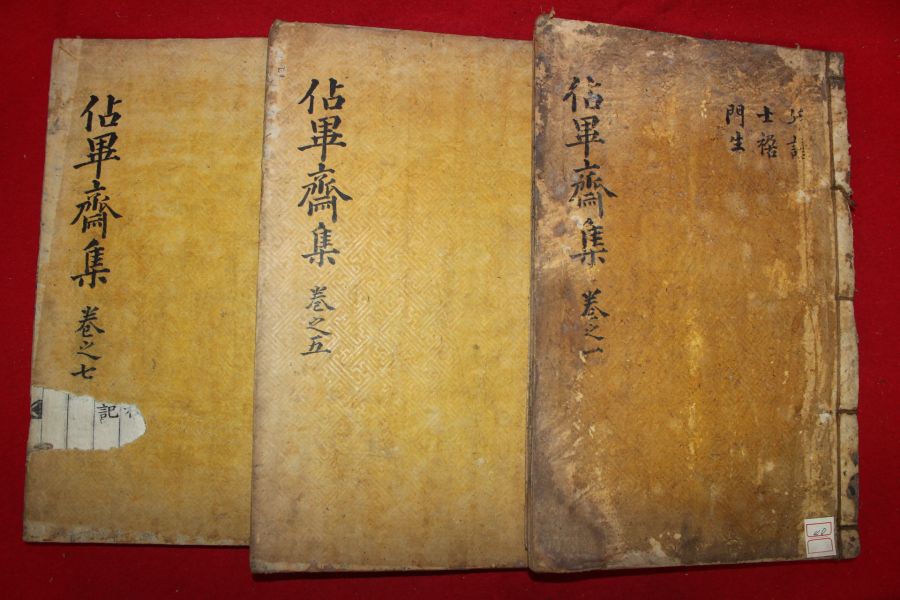 佔畢齋集
卷之七
記
佔畢齋集
卷之五
佔畢齋集
卷之一
士禍
門生